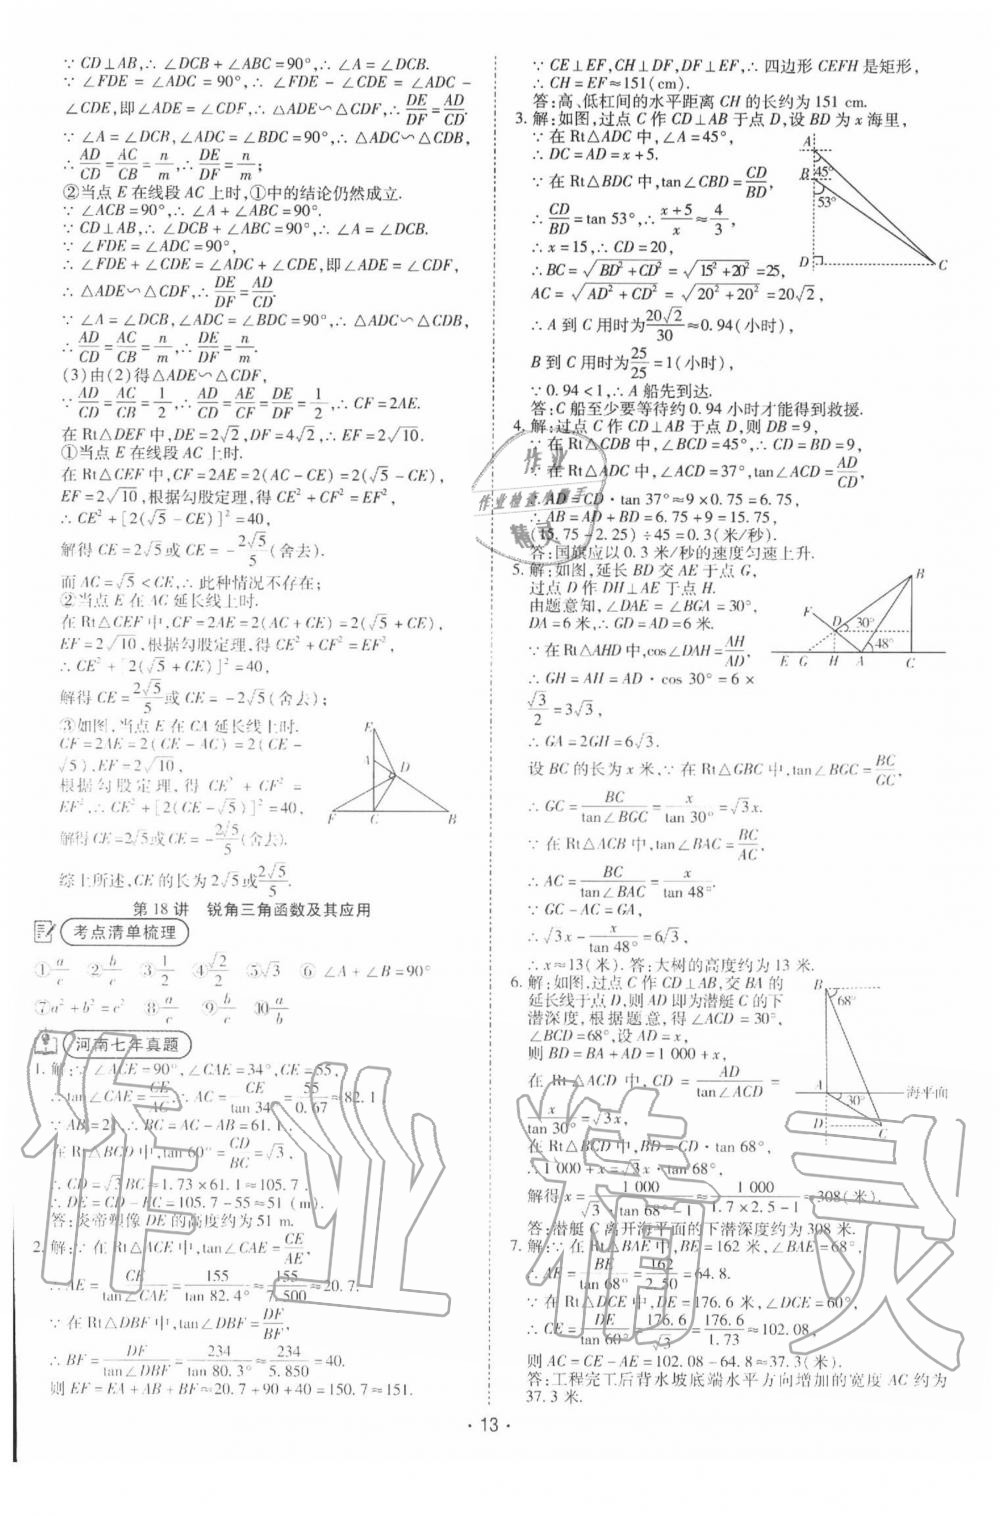 ∵ CD⊥AB,∴ ∠DCB + ∠ABC = 90°,∴ ∠A = ∠DCB.
∵ ∠FDE = ∠ADC = 90°,∴ ∠FDE - ∠CDE = ∠ADC -
∠CDE,即∠ADE = ∠CDF,∴ △ADE∽△CDF,∴ DE/DF = AD/CD.
∵ ∠A = ∠DCB,∠ADC = ∠BDC = 90°,∴ △ADC∽△CDB,
∴ AD/CD = AC/CB = n/m,∴ DE/DF = n/m;
②当点 E 在线段 AC 上时,①中的结论仍然成立.
∵ ∠ACB = 90°,∴ ∠A + ∠ABC = 90°.
∵ CD⊥AB,∴ ∠DCB + ∠ABC = 90°,∴ ∠A = ∠DCB.
∵ ∠FDE = ∠ADC = 90°,
∴ ∠FDE + ∠CDE = ∠ADC + ∠CDE,即∠ADE = ∠CDF,
∴ △ADE∽△CDF,∴ DE/DF = AD/CD.
∵ ∠A = ∠DCB,∠ADC = ∠BDC = 90°,∴ △ADC∽△CDB,
∴ AD/CD = AC/CB = n/m,∴ DE/DF = n/m.
(3)由(2)得△ADE∽△CDF,
∵ AD/CD = AC/CB = 1/2,∴ AD/CD = AE/CF = DE/DF = 1/2,∴ CF = 2AE.
在 Rt△DEF 中,DE = 2√2,DF = 4√2,∴ EF = 2√10.
①当点 E 在线段 AC 上时.
在 Rt△CEF 中,CF = 2AE = 2(AC - CE) = 2(√5 - CE),
EF = 2√10,根据勾股定理,得 CE² + CF² = EF²,
∴ CE² + [2(√5 - CE)]² = 40,
解得 CE = 2√5 或 CE = -2√5/5(舍去).
而 AC = √5 < CE,∴ 此种情况不存在;
②当点 E 在 AC 延长线上时.
在 Rt△CEF 中,CF = 2AE = 2(AC + CE) = 2(√5 + CE),
EF = 2√10,根据勾股定理,得 CE² + CF² = EF²,
∴ CE² + [2(√5 + CE)]² = 40,
解得 CE = 2√5/5 或 CE = -2√5(舍去);
③如图,当点 E 在 CA 延长线上时.
CF = 2AE = 2(CE - AC) = 2(CE -
√5),EF = 2√10,
根据勾股定理,得 CE² + CF² =
EF²,∴ CE² + [2(CE - √5)]² = 40,
解得 CE = 2√5 或 CE = -2√5/5(舍去).
E
A
D
F
C
B
综上所述,CE 的长为 2√5 或 2√5/5.
第 18 讲 锐角三角函数及其应用
考点清单梳理
① a/c ② b/c ③ 1/2 ④ √2/2 ⑤ √3 ⑥ ∠A + ∠B = 90°
⑦ a² + b² = c² ⑧ a/c ⑨ b/c ⑩ a/b
河南七年真题
1. 解:∵ ∠ACE = 90°,∠CAE = 34°,CE = 55,
∴ tan∠CAE = CE/AC,∴ AC = CE/tan 34° = 55/0.67 ≈ 82.1.
∵ AB = 21,∴ BC = AC - AB = 61.1.
在 Rt△BCD 中,tan 60° = CD/BC = √3,
∴ CD = √3BC ≈ 1.73×61.1 ≈ 105.7.
∴ DE = CD - EC = 105.7 - 55 ≈ 51 (m).
答:炎帝塑像 DE 的高度约为 51 m.
2. 解:∵ 在 Rt△ACE 中,tan∠CAE = CE/AE,
∴ AE = CE/tan∠CAE = 155/tan 82.4° ≈ 155/7.500 ≈ 20.7.
∵ 在 Rt△DBF 中,tan∠DBF = DF/BF,
∴ BF = DF/tan∠DBF = 234/tan 80.3° ≈ 234/5.850 = 40.
则 EF = EA + AB + BF ≈ 20.7 + 90 + 40 = 150.7 ≈ 151.
∵ CE⊥EF,CH⊥DF,DF⊥EF,∴ 四边形 CEFH 是矩形,
∴ CH = EF ≈ 151(cm).
答:高、低杠间的水平距离 CH 的长约为 151 cm.
3. 解:如图,过点 C 作 CD⊥AB 于点 D,设 BD 为 x 海里,
∵ 在 Rt△ADC 中,∠A = 45°,
∴ DC = AD = x + 5.
∵ 在 Rt△BDC 中,tan∠CBD = CD/BD,
∴ CD/BD = tan 53°,∴ (x+5)/x ≈ 4/3,
∴ x = 15,∴ CD = 20,
∴ BC = √(BD² + CD²) = √(15² + 20²) = 25,
AC = √(AD² + CD²) = √(20² + 20²) = 20√2,
A
45°
B
53°
D
C
∴ A 到 C 用时为 20√2/30 ≈ 0.94(小时),
B 到 C 用时为 25/25 = 1(小时),
∵ 0.94 < 1,∴ A 船先到达.
答:C 船至少要等待约 0.94 小时才能得到救援.
4. 解:过点 C 作 CD⊥AB 于点 D,则 DB = 9,
∵ 在 Rt△CDB 中,∠BCD = 45°,∴ CD = BD = 9,
∵ 在 Rt△ACD 中,∠ACD = 37°,tan∠ACD = AD/CD,
∴ AD = CD · tan 37° ≈ 9×0.75 = 6.75,
∴ AB = AD + BD = 6.75 + 9 = 15.75,
(15.75 - 2.25) ÷ 45 = 0.3(米/秒).
答:国旗应以 0.3 米/秒的速度匀速上升.
5. 解:如图,延长 BD 交 AE 于点 G,
过点 D 作 DH⊥AE 于点 H.
由题意知,∠DAE = ∠BGA = 30°,
DA = 6 米,∴ GD = AD = 6 米.
∵ 在 Rt△AHD 中,cos∠DAH = AH/AD,
∴ GH = AH = AD · cos 30° = 6 ×
√3/2 = 3√3,
B
F
D
30°
48°
E
G
H
A
C
∴ GA = 2GH = 6√3.
设 BC 的长为 x 米,∵ 在 Rt△GBC 中,tan∠BGC = BC/GC,
∴ GC = BC/tan∠BGC = x/tan 30° = √3x.
∵ 在 Rt△ACB 中,tan∠BAC = BC/AC,
∴ AC = BC/tan∠BAC = x/tan 48°.
∵ GC - AC = GA,
∴ √3x - x/tan 48° = 6√3,
∴ x ≈ 13(米). 答:大树的高度约为 13 米.
6. 解:如图,过点 C 作 CD⊥AB,交 BA 的
延长线于点 D,则 AD 即为潜艇 C 的下
潜深度, 根据题意, 得 ∠ACD = 30°,
∠BCD = 68°. 设 AD = x,
则 BD = BA + AD = 1 000 + x,
在 Rt △ACD 中, CD = AD/tan∠ACD =
x/tan 30° = √3x,
B
68°
A
30°
海平面
D
C
在 Rt△BCD 中,BD = CD · tan 68°,
∴ 1 000 + x = √3x · tan 68°,
解得 x = 1 000/(√3tan 68° - 1) ≈ 1 000/(1.7×2.5 - 1) ≈ 308(米).
答:潜艇 C 离开海平面的下潜深度约为 308 米.
7. 解:∵ 在 Rt△BAE 中,BE = 162 米,∠BAE = 68°,
∴ AE = BE/tan 68° ≈ 162/2.50 = 64.8.
∵ 在 Rt△DCE 中,DE = 176.6 米,∠DCE = 60°,
∴ CE = DE/tan 60° = 176.6/√3 ≈ 176.6/1.73 ≈ 102.08,
则 AC = CE - AE = 102.08 - 64.8 ≈ 37.3(米).
答:工程完工后背水坡底端水平方向增加的宽度 AC 约为
37.3 米.
· 13 ·
作业
作业检查小助手
精灵
作业精灵